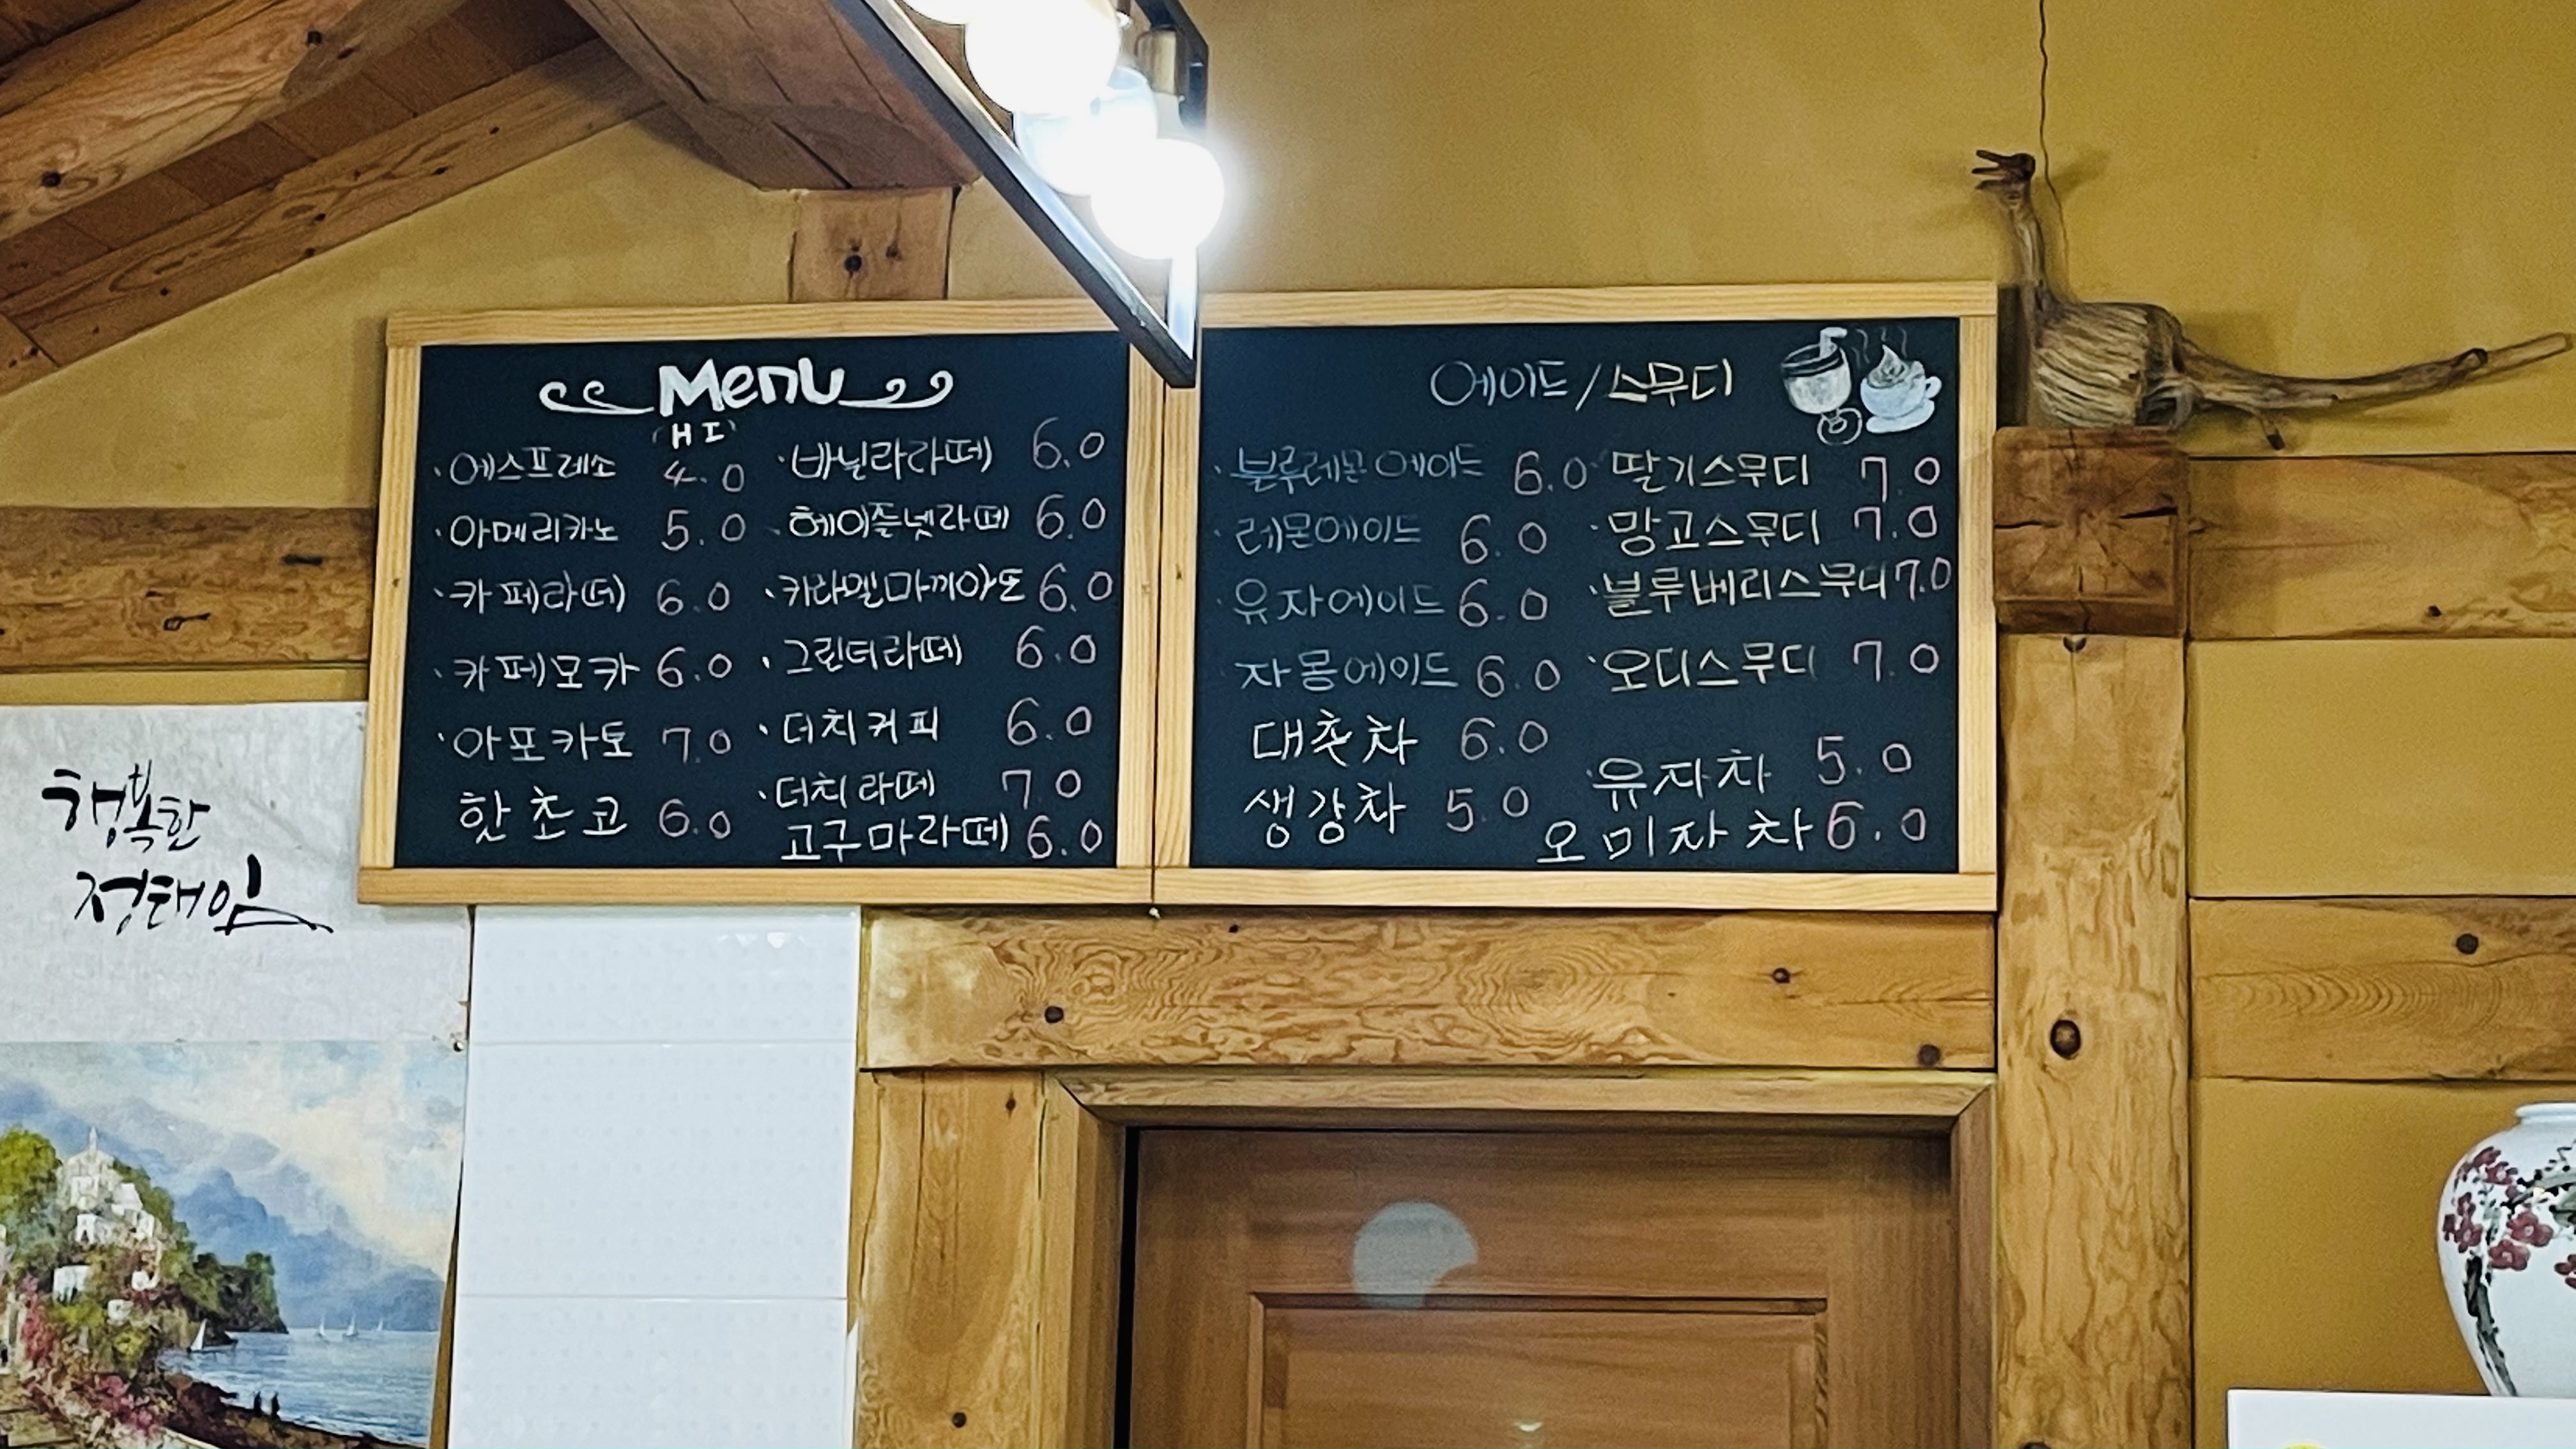 Menu
(H I)
·에스프레소 4.0
·아메리카노 5.0
·카페라떼 6.0
·카페모카 6.0
·아포카토 7.0
핫초코 6.0
·바닐라라떼 6.0
·헤이즐넷라떼 6.0
·카라멜마끼아또 6.0
·그린티라떼 6.0
·더치커피 6.0
·더치라떼 7.0
고구마라떼 6.0
에이드/스무디
·블루레몬에이드 6.0
·레몬에이드 6.0
·유자에이드 6.0
·자몽에이드 6.0
대춋차 6.0
생강차 5.0
·딸기스무디 7.0
·망고스무디 7.0
·블루베리스무디 7.0
·오디스무디 7.0
·유자차 5.0
오미자차 6.0
행복한
정태임